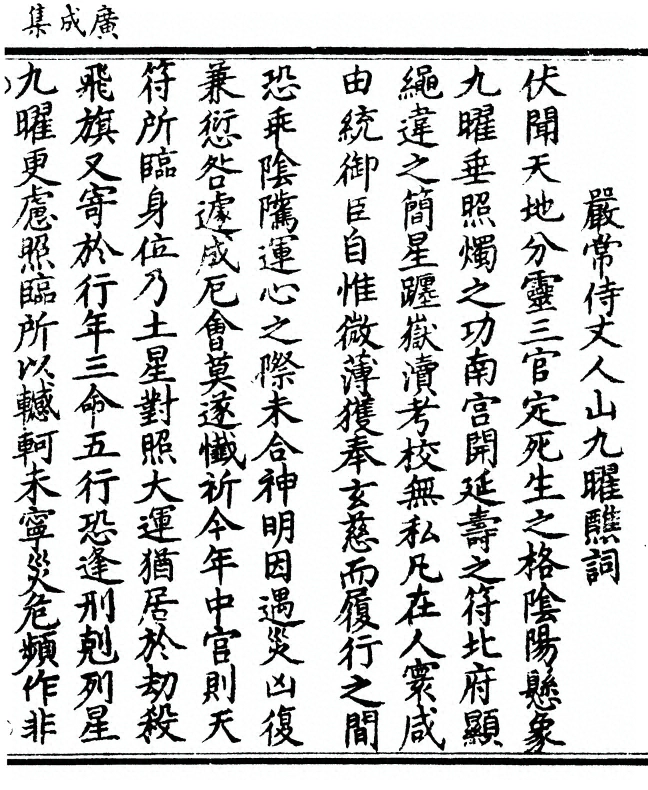 廣成集
嚴常侍丈人山九曜醮詞
伏聞天地分靈三官定死生之格陰陽懸象
九曜垂照燭之功南宮開延壽之符北府顯
繩違之簡星躔嶽瀆考校無私凡在人寰咸
由統御臣自惟微薄獲奉玄慈而履行之間
恐乖陰隲運心之際未合神明因遇災凶復
兼愆咎遽成厄會莫遂懺祈今年中宮則天
符所臨身位乃土星對照大運猶居於劫殺
飛旗又寄於行年三命五行恐逢刑剋列星
九曜更慮照臨所以轗軻未寧災危頻作非